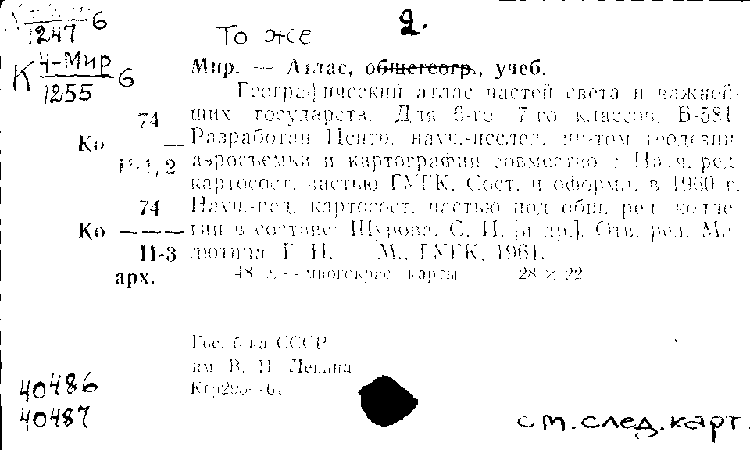 1247 б
То же
2.
К Ч-Мир
1255 б
Мир. — Атлас, общегеогр., учеб.
Географический атлас частей света и важней-
ших государств. Для 6-го 7-го классов. Б-581
74
Разработан Центр. науч.-исслед. ин-том геодезии
Ко —
аэросъемки и картографии совместно с Науч. ред.
картосост. частью ГУГК. Сост. и оформл. в 1960 г.
74
Науч.-ред. картосост. частью под общ. ред. колле-
Ко ———
гии в составе: Щурова, С. И. [и др.]. Отв. ред.
II-3
Г. Н. М., ГУГК, 1961.
арх.
48 с. многокрас. карты 28 × 22
Гос. б-ка СССР
им. В. И. Ленина
40486
40487
см. след. карт.